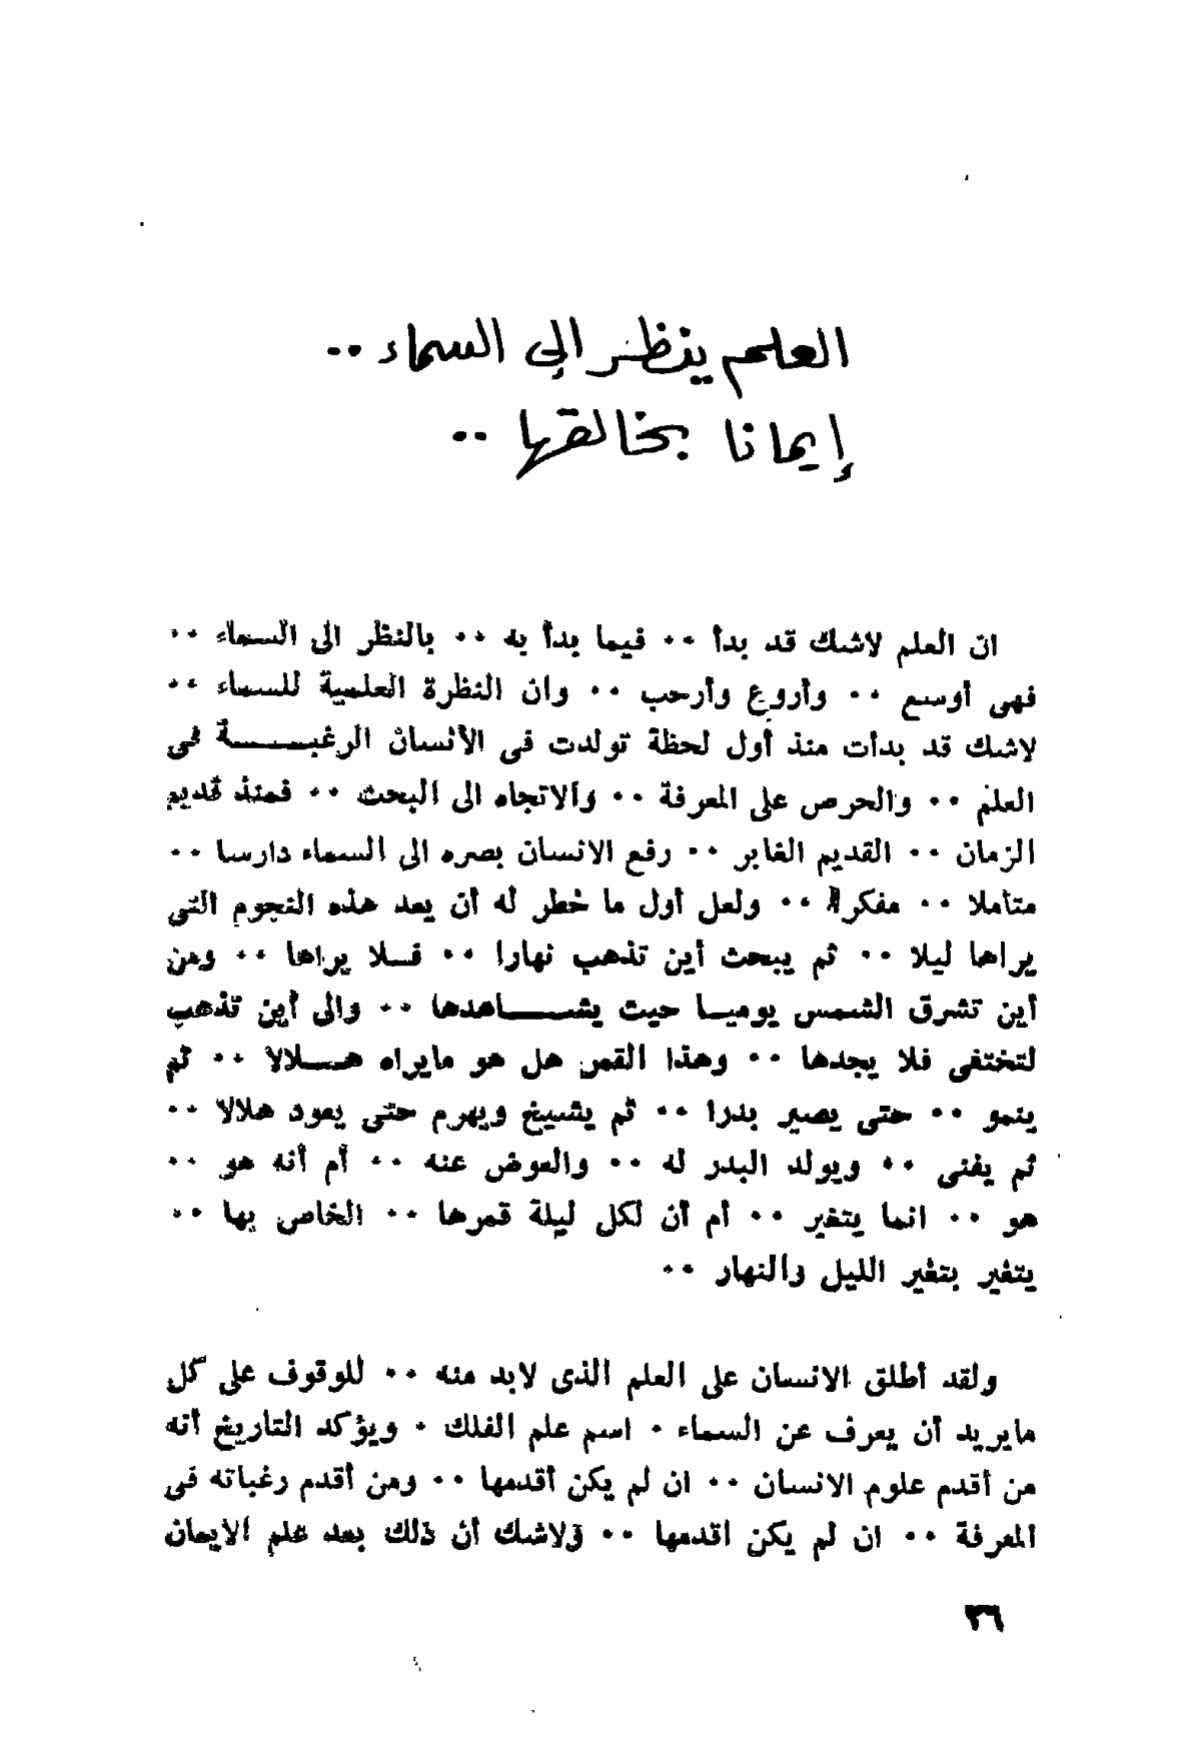 العلم ينظر إلى السماء ..
إيمانا بخالقها ..
ان العلم لاشك قد بدأ .. فيما بدأ به .. بالنظر الى السماء ..
فهى أوسع .. وأروع وأرحب .. وان النظرة العلمية للسماء ..
لاشك قد بدأت منذ أول لحظة تولدت فى الأنسان الرغبـــــة فى
العلم .. والحرص على المعرفة .. والاتجاه الى البحث .. فمنذ قديم
الزمان .. القديم الغابر .. رفع الانسان بصره الى السماء دارسا ..
متأملا .. مفكرا .. ولعل أول ما خطر له أن يعد هذه النجوم التى
يراها ليلا .. ثم يبحث أين تذهب نهارا .. فـلا يراها .. ومن
أين تشرق الشمس يوميـا حيث يشـــاهدها .. والى أين تذهب
لتختفى فلا يجدها .. وهذا القمر هل هو مايراه هــلالا .. ثم
ينمو .. حتى يصير بدرا .. ثم يشيخ ويهرم حتى يعود هلالا ..
ثم يفنى .. ويولد البدر له .. والعوض عنه .. أم أنه هو ..
هو .. انما يتغير .. أم أن لكل ليلة قمرها .. الخاص بها ..
يتغير بتغير الليل والنهار ..
ولقد أطلق الانسان على العلم الذى لابد منه .. للوقوف على كل
مايريد أن يعرف عن السماء . اسم علم الفلك . ويؤكد التاريخ أنه
من أقدم علوم الانسان .. ان لم يكن أقدمها .. ومن أقدم رغباته فى
المعرفة .. ان لم يكن اقدمها .. ولاشك أن ذلك بعد علم الايمان
٣٦